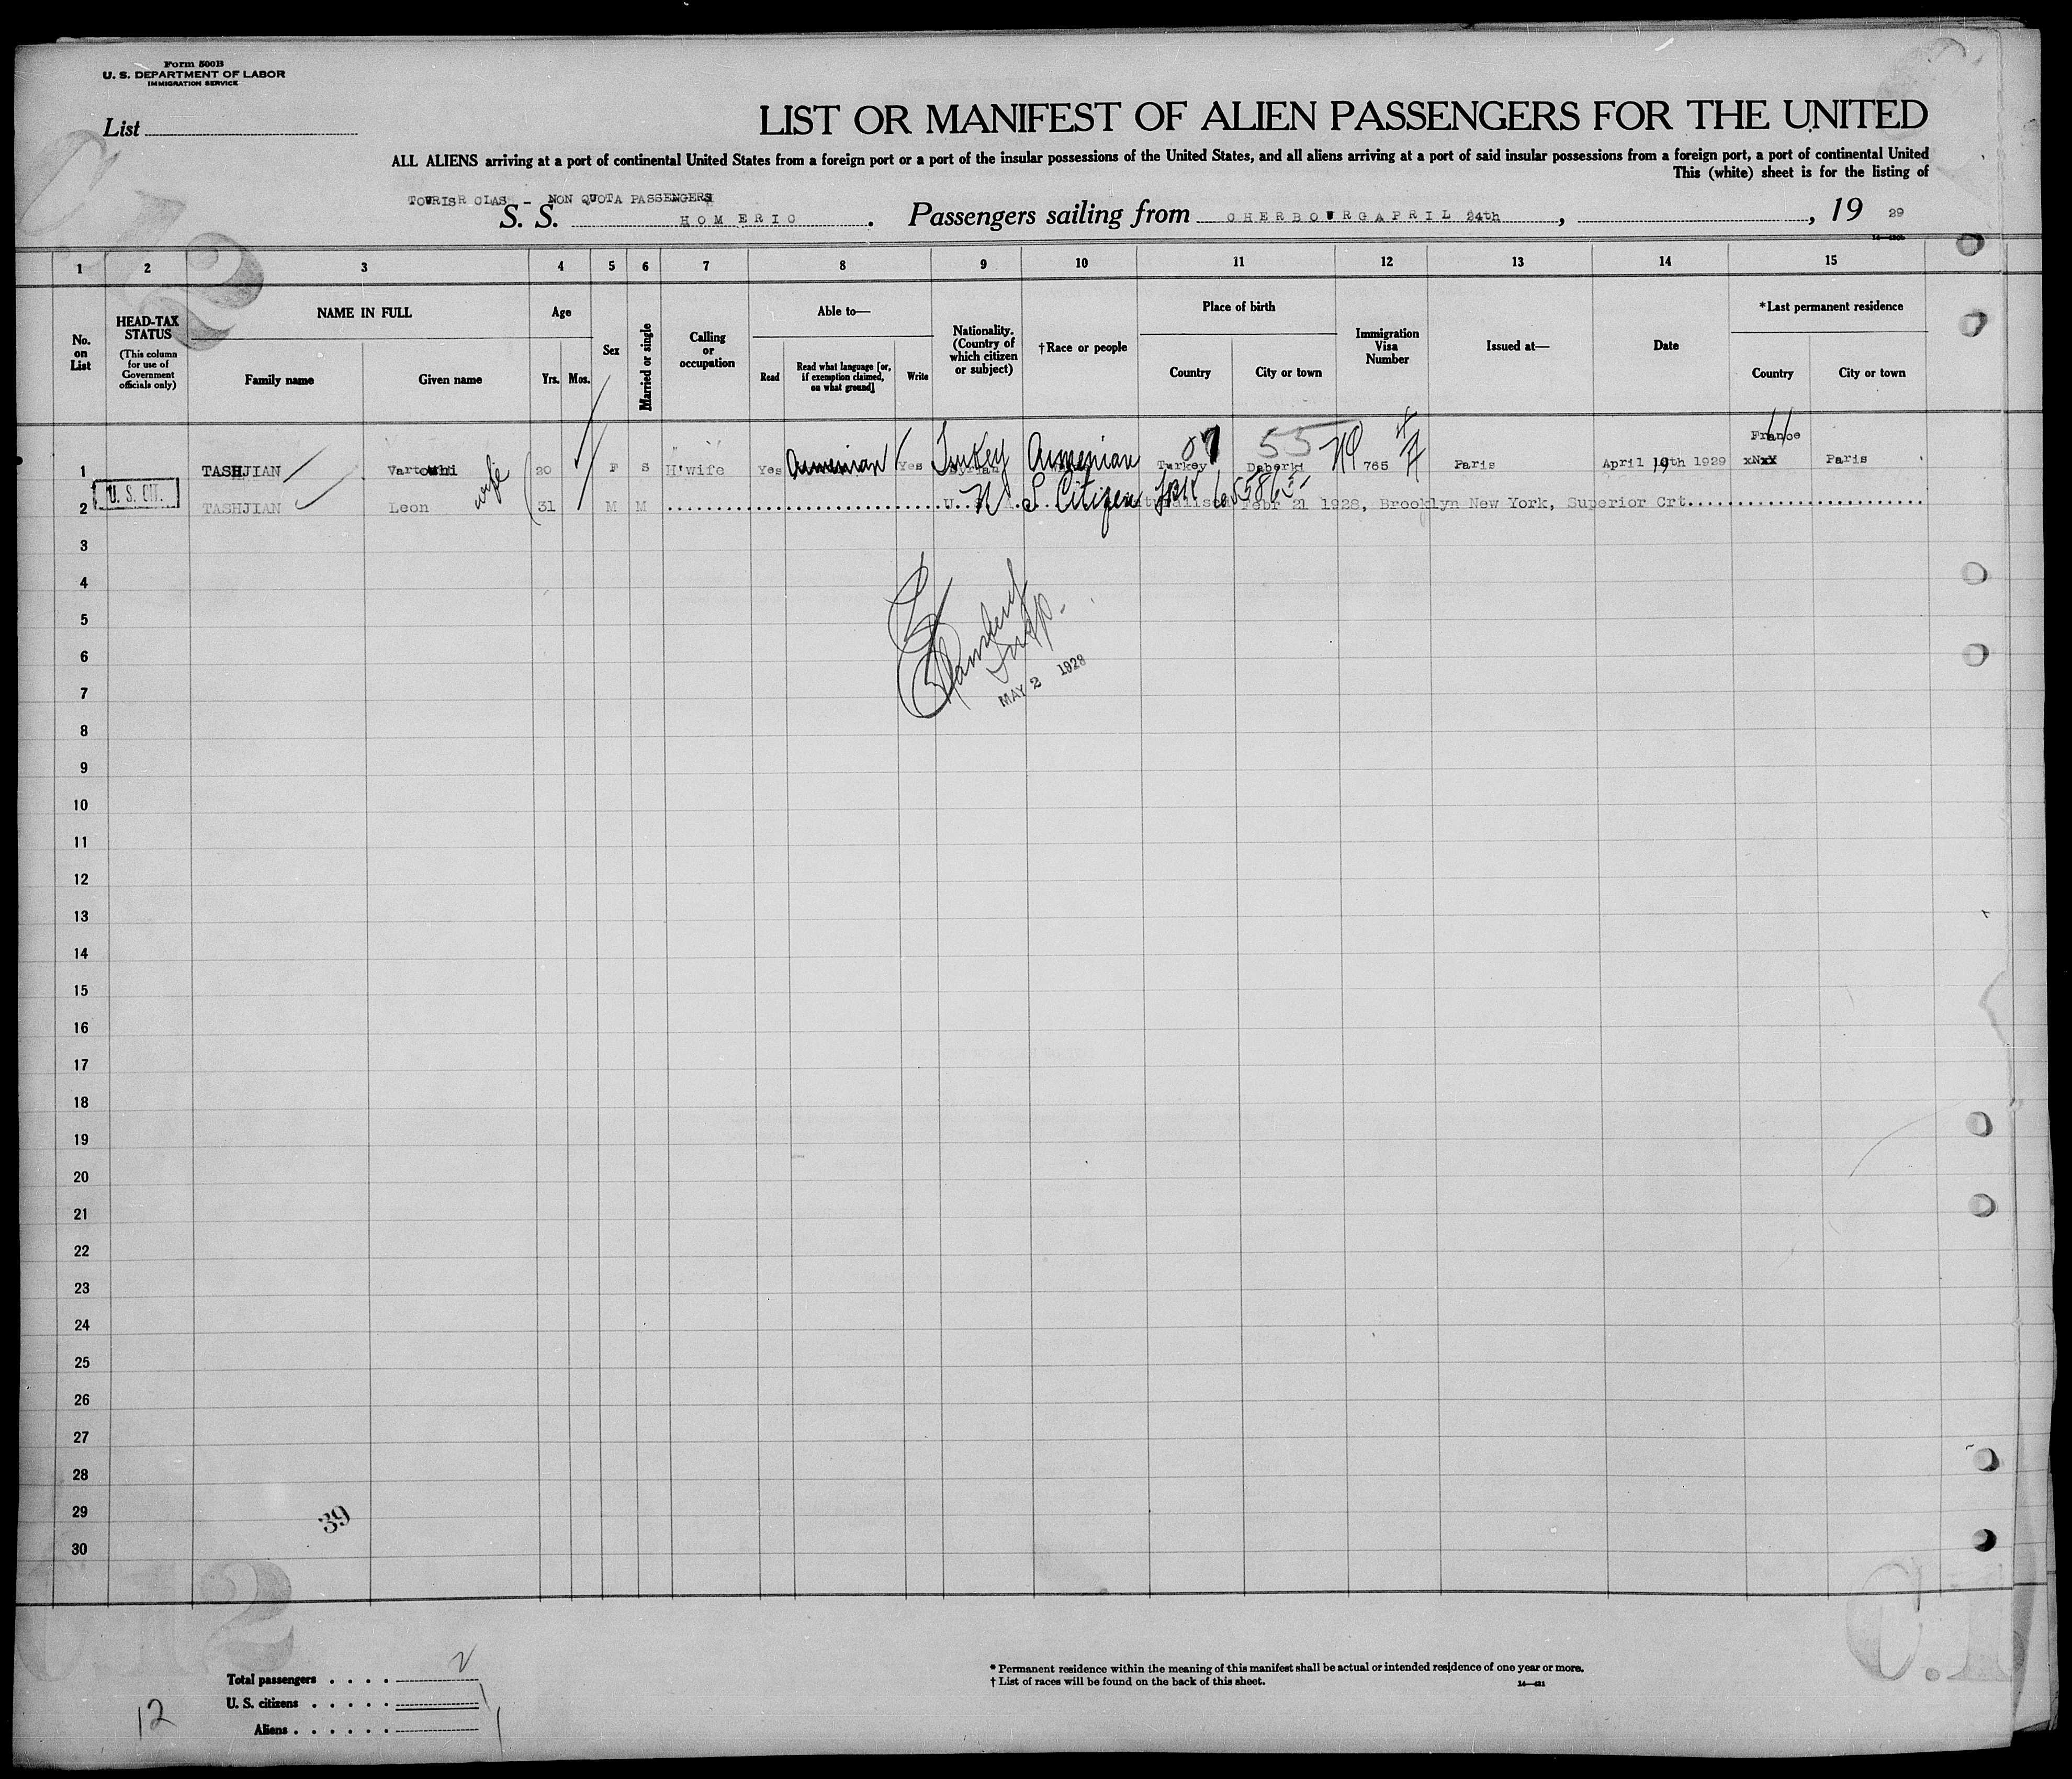 Form 500B
U. S. DEPARTMENT OF LABOR
IMMIGRATION SERVICE
List
LIST OR MANIFEST OF ALIEN PASSENGERS FOR THE UNITED
ALL ALIENS arriving at a port of continental United States from a foreign port or a port of the insular possessions of the United States, and all aliens arriving at a port of said insular possessions from a foreign port, a port of continental United
This (white) sheet is for the listing of
TOURISR CLAS - NON QUOTA PASSENGERS
S. S. HOMERIC. Passengers sailing from CHERBOURG APRIL 24th, , 19 29
1 2 3 4 5 6 7 8 9 10 11 12 13 14 15
No. on List
HEAD-TAX STATUS (This column for use of Government officials only)
NAME IN FULL
Family name Given name
Age
Yrs. Mos.
Sex
Married or single
Calling or occupation
Able to—
Read Read what language [or, if exemption claimed, on what ground] Write
Nationality. (Country of which citizen or subject)
†Race or people
Place of birth
Country City or town
Immigration Visa Number
Issued at—
Date
*Last permanent residence
Country City or town
07 55 France
1 TASHJIAN wife 20 F S H'wife Yes Armenian Yes Turkey Armenian Turkey 765 Paris April 19th 1929 Paris
U. S. CIT.
2 TASHJIAN Leon 31 M M U. S. Citizen Febr 21 1928, Brooklyn New York, Superior Crt.
3
4
5
6
7
Insp.
MAY 2 1929
8
9
10
11
12
13
14
15
16
17
18
19
20
21
22
23
24
25
26
27
28
29
30
39
612
Total passengers . . . . 2
U. S. citizens . . . . . 1
Aliens . . . . . . 1
12
* Permanent residence within the meaning of this manifest shall be actual or intended residence of one year or more.
† List of races will be found on the back of this sheet.
14—421